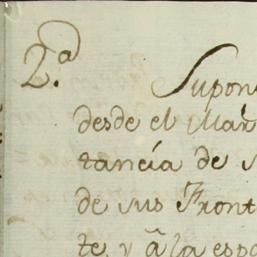 2.ª
Supon
desde el Mar
tancia de s
de sus Front
te, y â la espa